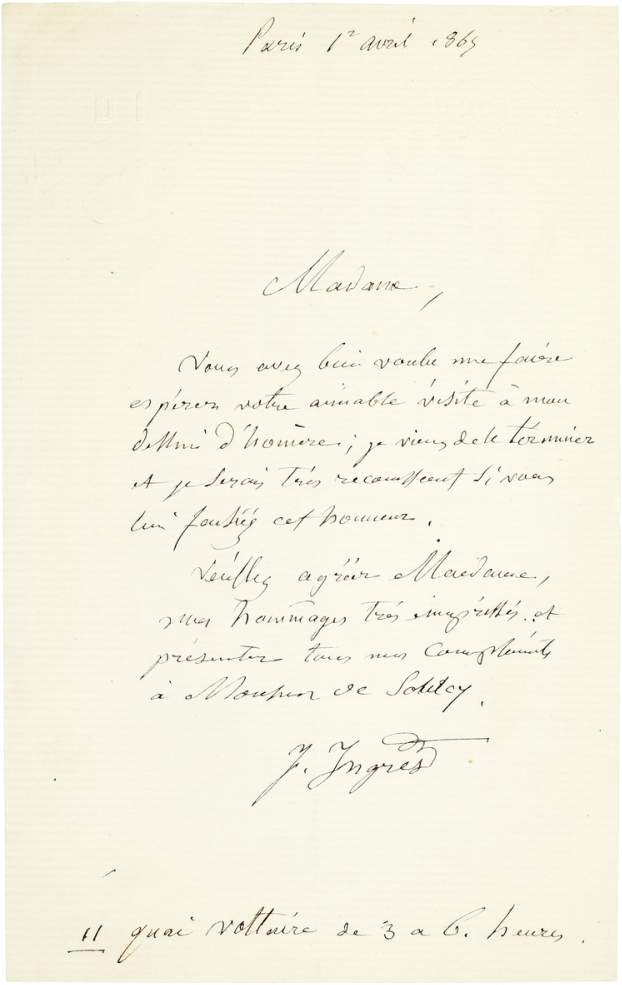 Paris 1er avril 1865
Madame,
Vous avez bien voulu me faire
espérer votre aimable visite à mon
dessin d'homère; je viens de le términer
et je serais très reconnaissant si vous
lui fassiéz cet honneur.
Veuillez agréér Madame,
mes hommages très empressés. et
présenter tous mes Compliments
à Monsieur de
J. Ingres
11 quai voltaire de 3 a 6. heures.